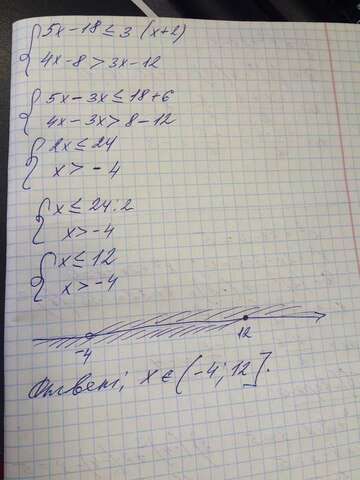 5x-18≤3(x+2)
4x-8>3x-12
5x-3x≤18+6
4x-3x>8-12
2x≤24
x>-4
x≤24:2
x>-4
x≤12
x>-4
-4 12
Ответ; x∈(-4;12].